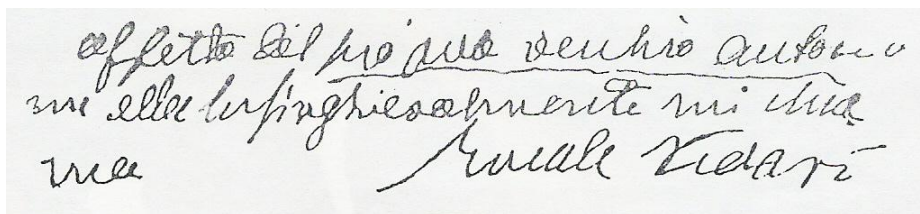 affetto del più suo vecchio autore co
me ella lusinghievolmente mi chia
ma Ercole Vidari